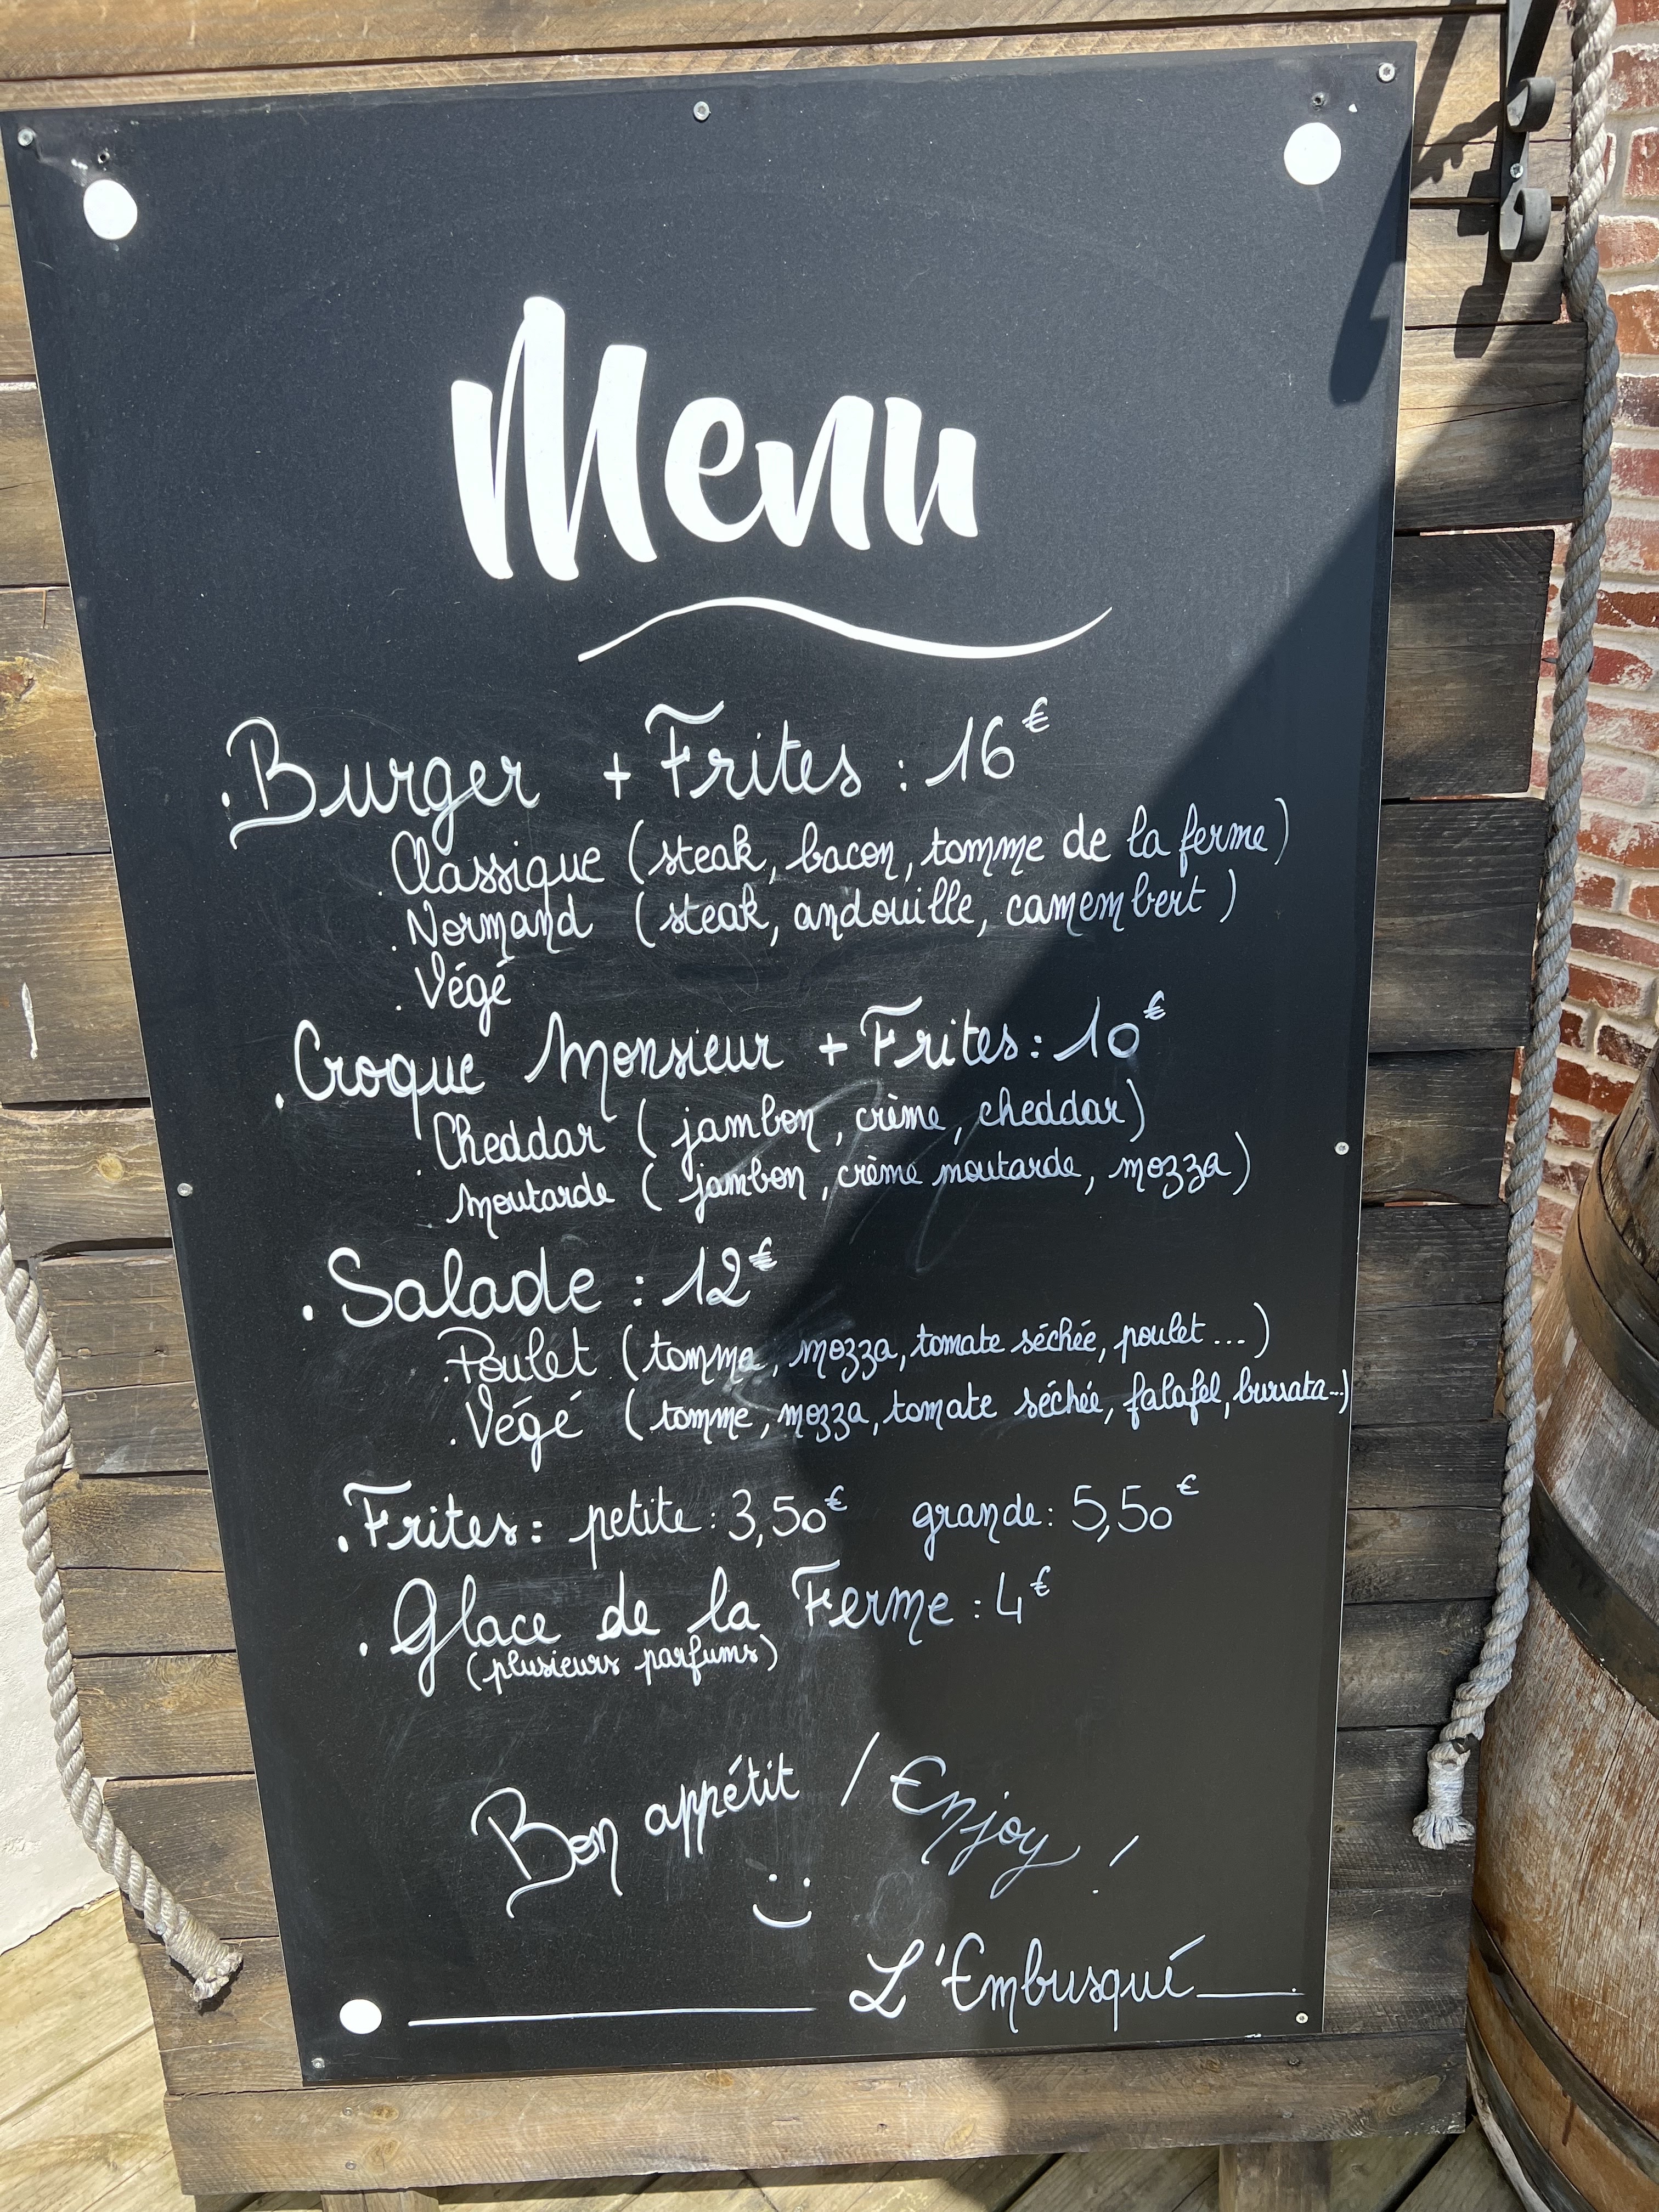 Menu
. Burger + Frites : 16€
. Classique (steak, bacon, tomme de la ferme)
. Normand (steak, andouille, camembert)
. Végé
. Croque Monsieur + Frites : 10€
. Cheddar (jambon, crème, cheddar)
. Moutarde (jambon, crème moutarde, mozza)
. Salade : 12€
. Poulet (tomme, mozza, tomate séchée, poulet...)
. Végé (tomme, mozza, tomate séchée, falafel, burrata...)
. Frites : petite : 3,50€ grande : 5,50€
. Glace de la Ferme : 4€
(plusieurs parfums)
Bon appétit / Enjoy !
L'Embusqué